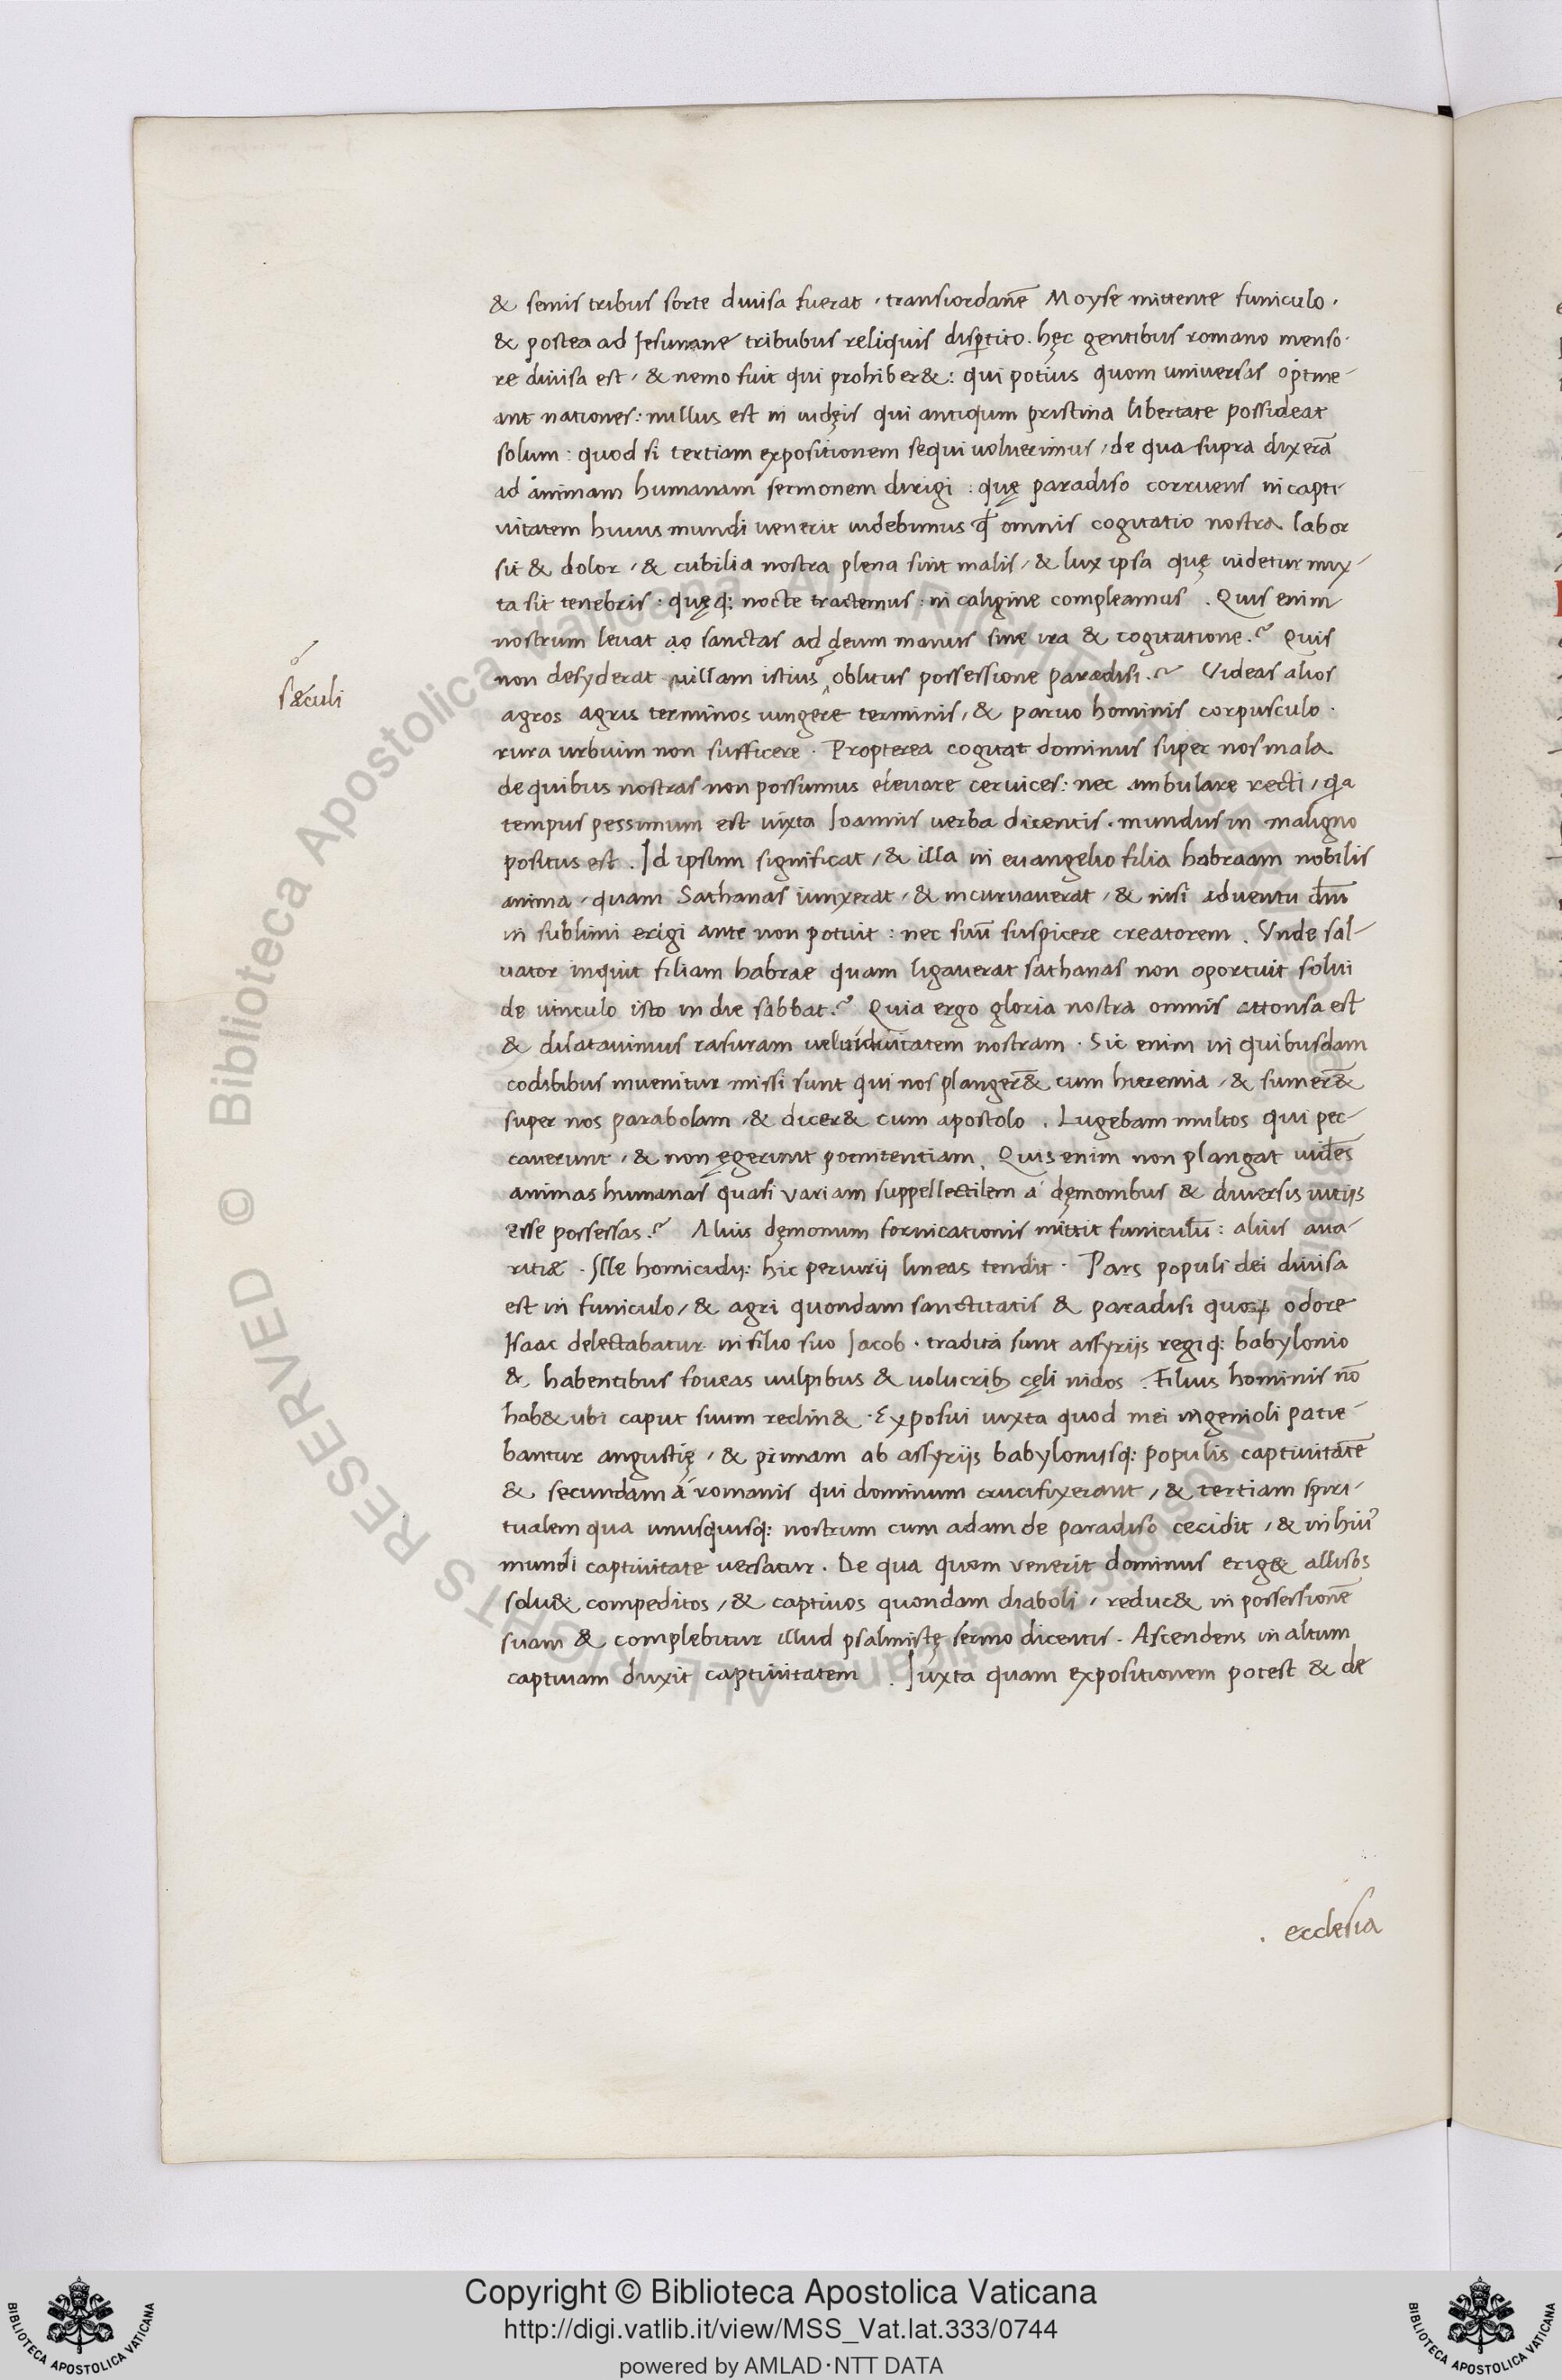 & semis tribus sorte diuisa fuerat, transiordanē Moyse mittente funiculo,
& postea ad Iesunane tribubus reliquis disp̱tito. hęc gentibus romano menso-
re diuisa est, & nemo fuit qui prohiber&: qui potius quom universas optine-
ant nationes: nullus est in iudęis qui antiqum pristina libertate possideat
solum: quod si tertiam expositionem sequi uoluerimus, de qua supra dixerā
ad animam humanam sermonem dirigi: quę paradiso corruens in capti-
uitatem huius mundi uenerit uidebimus qđ omnis cogitatio nostra labor
sit & dolor, & cubilia nostra plena sint malis, & lux ipsa quę uidetur mix-
ta sit tenebris: quęq: nocte tractemus: in caligine compleamus. Quis enim
nostrum leuat ao sanctas ad deum manus sine ira & cogitatione? Quis
non desyderat uillam istius oblitus possessione paradisi? Videas alios
sæculi
agros agris terminos iungere terminis, & paruo hominis corpusculo
rura urbium non sufficere. Propterea cogitat dominus super nos mala
de quibus nostras non possumus eleuare ceruices: nec ambulare recti, qa
tempus pessimum est iuxta Ioannis uerba dicentis. mundus in maligno
positus est. Id ipsum significat, & illa in euangelio filia habraam nobilis
anima, quam Sathanas iunxerat, & incuruauerat, & nisi aduentu dn̄i
in sublimi erigi ante non potuit: nec suū suspicere creatorem. Vnde sal-
uator inquit filiam habrae quam ligauerat sathanas non oportuit solui
de uinculo isto in die sabbat? Quia ergo gloria nostra omnis attonsa est
& dilatauimus rasuram uel uiduitatem nostram. Sic enim in quibusdam
codibibus inuenitur missi sunt qui nos plangerē& cum hieremia, & sumerē&
super nos parabolam, & dicer& cum apostolo. Lugebam multos qui pec-
cauerunt, & non ęgerunt poenitentiam. Quis enim non plangat uidēs
animas humanas quasi variam suppellectilem á dęmonibus & diuersis uitijs
esse possessas? Aliuis dęmonum fornicationis mittit funiculū: alius aua-
ritiæ. Ille homicidij: hic periurij lineas tendit. Pars populi dei diuisa
est in funiculo, & agri quondam sanctitatis & paradisi quoꝝ odore
Isaac delectabatur in filio suo Jacob. tradita sunt assyrijs regiq: babylonio
& habentibus foueas uulpibus & uolucribꝫ cęli nidos. Filius hominis nō
hab& ubi caput suum reclin&. Exposui iuxta quod mei ingenioli patie-
bantur angustię, & primam ab assyrijs babylonijsq: populis captiuitatē
& secundam á romanis qui dominum crucifixerant, & tertiam spiri-
tualem qua unusquisq: nostrum cum adam de paradiso cecidit, & in hui'
mundi captiuitate uersatur. De qua quom venerit dominus erig& allisos
solu& compeditos, & captiuos quondam diaboli, reduc& in possessionē
suam & complebitur illud psalmistę sermo dicentis. Ascendens in altum
captiuam duxit captiuitatem. Iuxta quam expositionem potest & de
. ecclesia
Copyright © Biblioteca Apostolica Vaticana
http://digi.vatlib.it/view/MSS_Vat.lat.333/0744
powered by AMLAD·NTT DATA